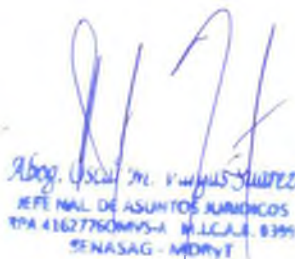 Abog. Oscar M. Vargas Suarez
JEFE NAL. DE ASUNTOS JURIDICOS
RPA 4162776OMVS-A M.I.C.A.J. 8399
SENASAG - MDRyT